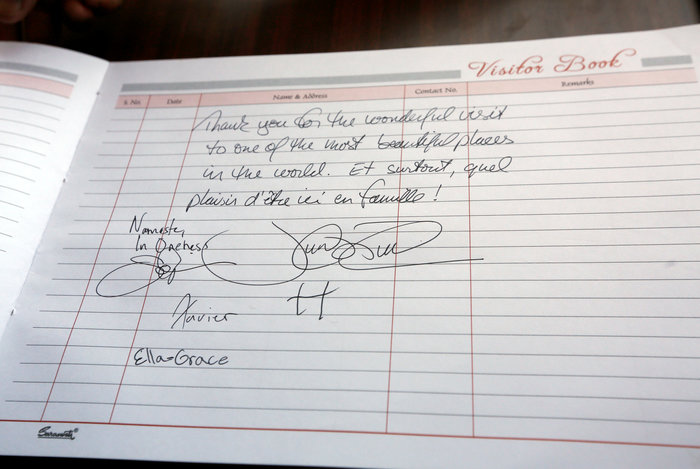 Visitor Book
S. No. Date Name & Address Contact No. Remarks
Thank you for the wonderful visit
to one of the most beautiful places
in the world. Et surtout, quel
plaisir d'être ici en famille !
Namaste,
In Oneness
Xavier
H
Ella-Grace
Saraswati